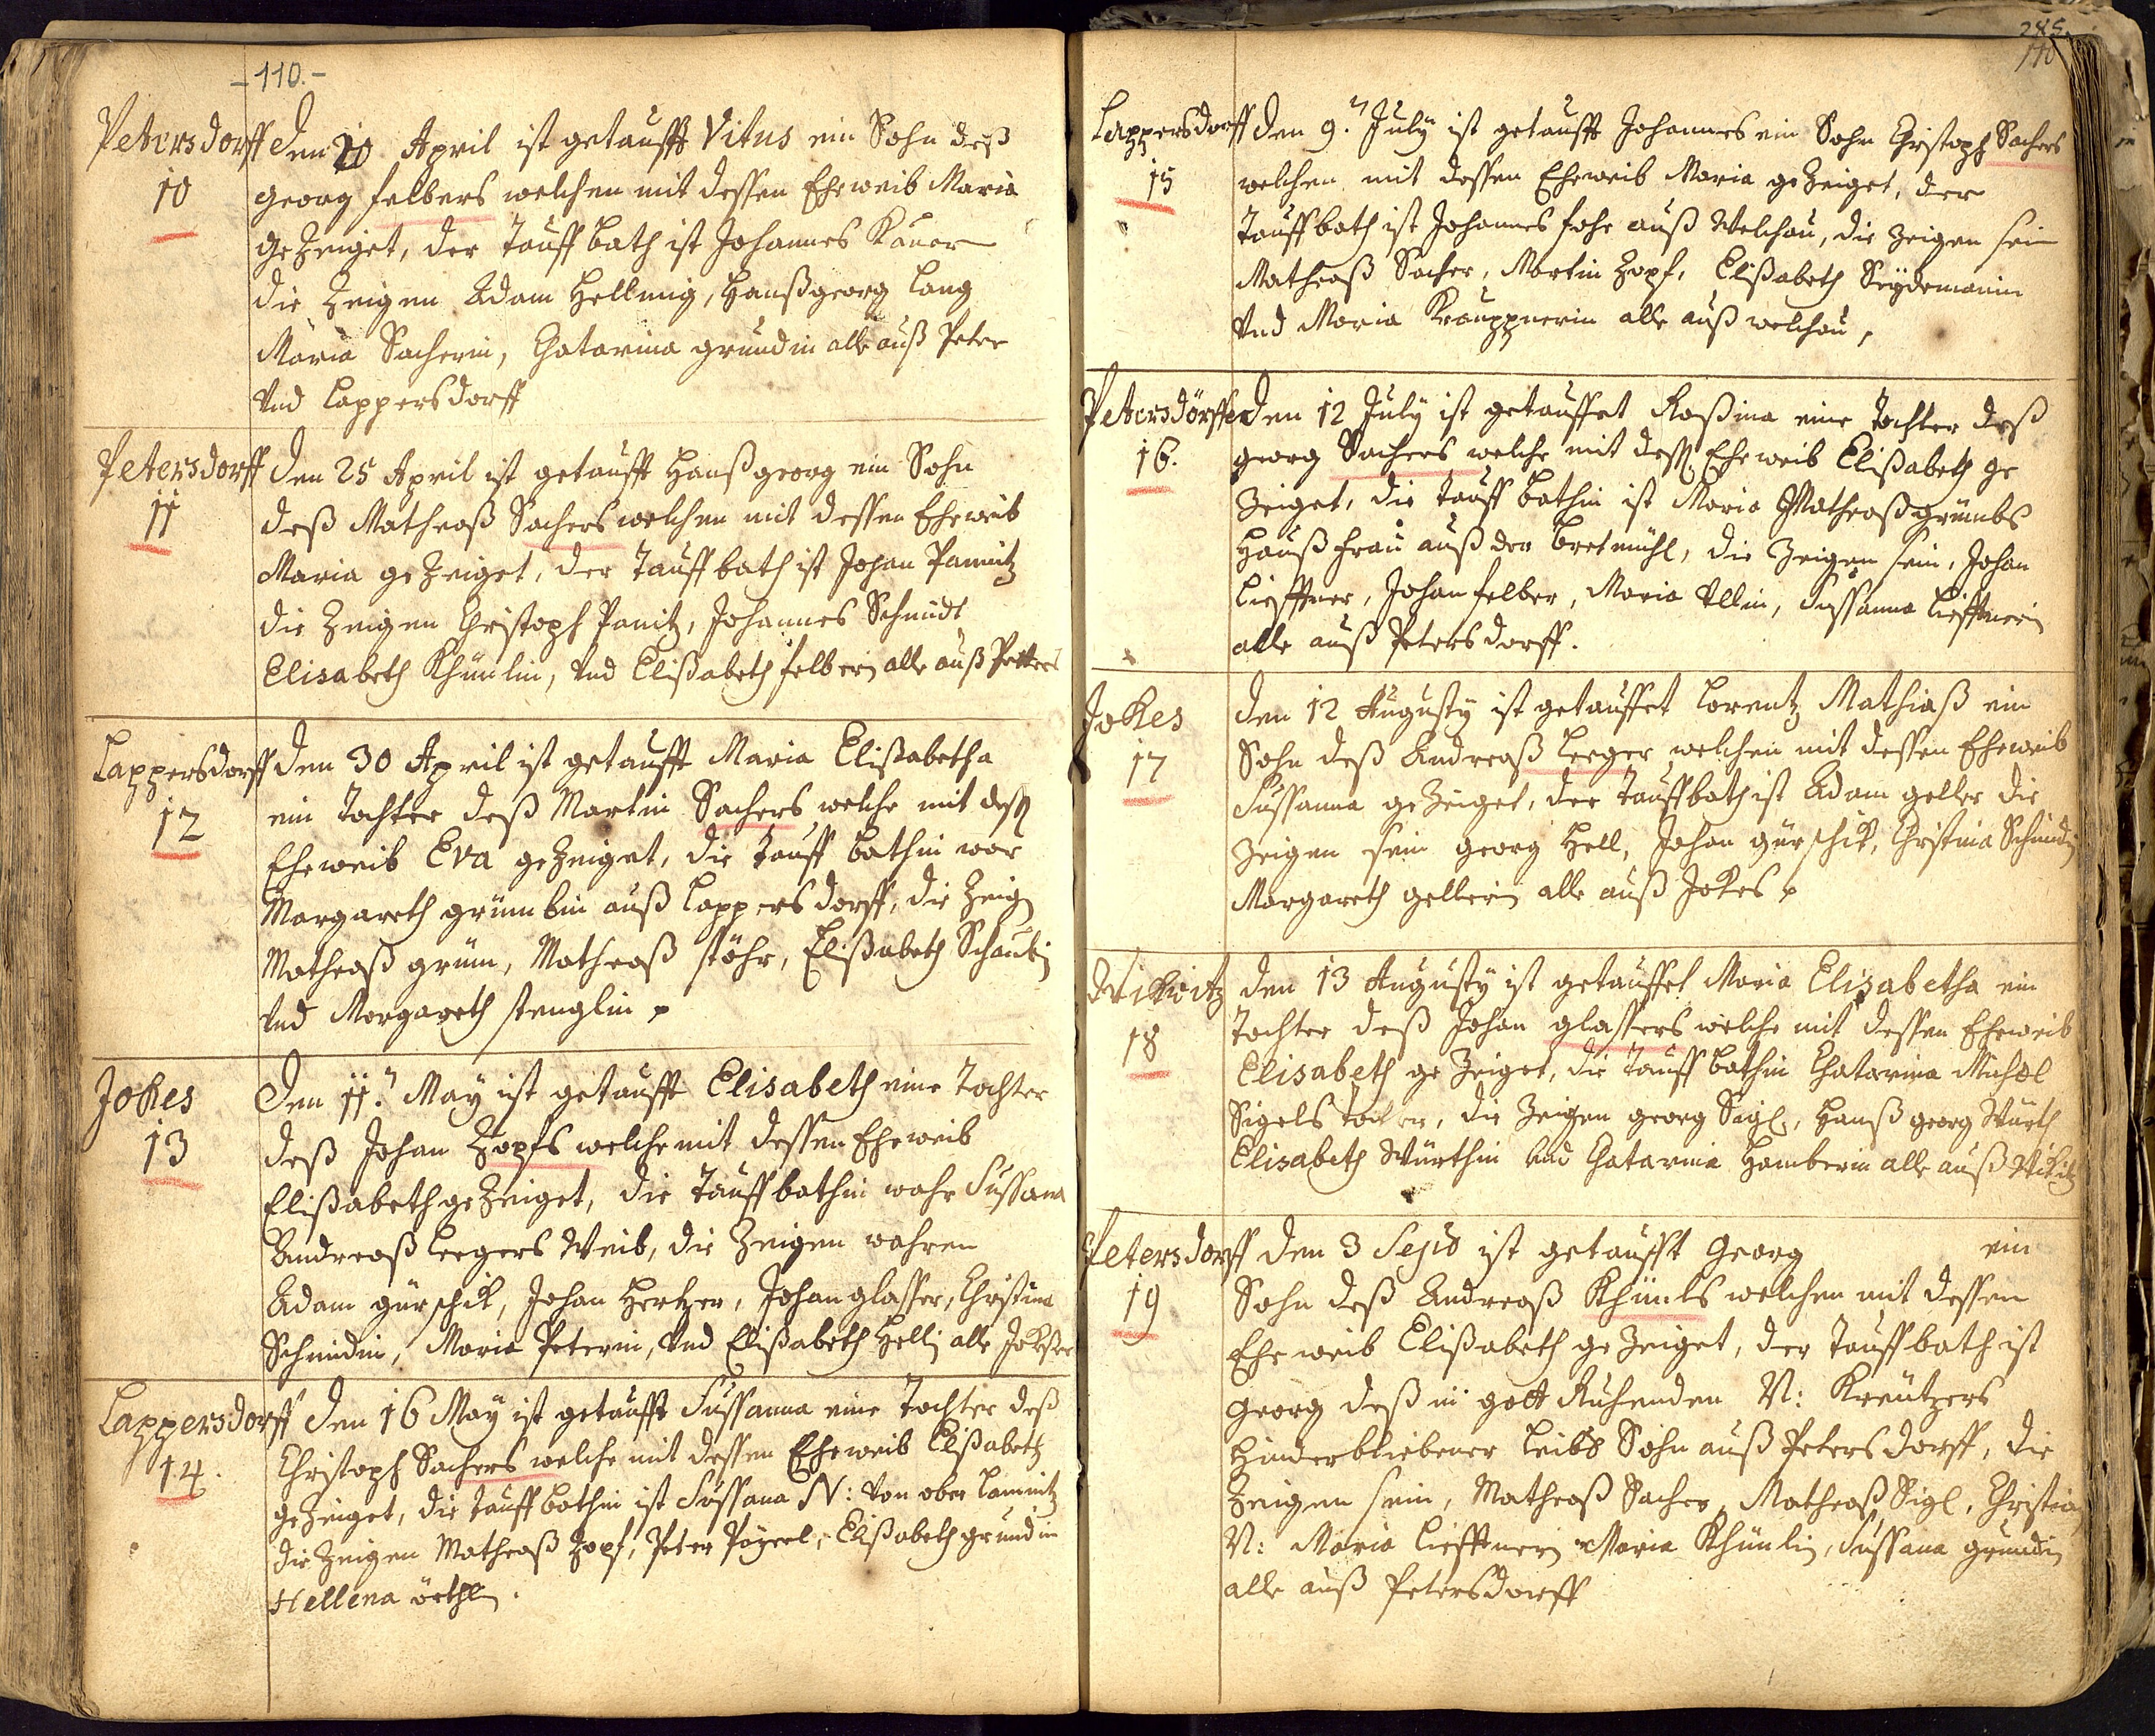 -110.-
Petersdorff
10
den 20 April ist getaufft Vitus ein Sohn deß
Georg felbers welchen mit dessen Eheweib Maria
gezeiget, der Tauff bath ist Johannes Kauer
die Zeigen Adam Hellmig, Hanßgeorg Lang
Maria Sacherin, Chatarina grundin alle auß Peter
Vnd Lappersdorff
Petersdorff
11
den 25 April ist getaufft Hanßgeorg ein Sohn
deß Matheaß Sachers welchen mit dessen Eheweib
Maria gezeiget, der Tauff bath ist Johan Pannitz
die Zeigen Christoph Panitz, Johannes Schmidt
Elisabeth Khünlin, Vnd Elißabeth felberin alle auß Petters
Lappersdorff
12
den 30 April ist getaufft Maria Elißabetha
ein Tochter deß Martin Sachers welche mit deß
Eheweib Eva gezeiget, die Tauff bathin war
Margareth grümbin auß Lappersdorff, die Zeigen
Matheaß grüm, Matheaß stöhr, Elißabeth Schaubin
Vnd Margareth stenglin
Jokes
13
Den 11. May ist getaufft Elisabeth eine Tochter
deß Johan Zopfs welche mit dessen Eheweib
Elißabeth gezeiget, die Tauff bathin wahr Sussana
Andreaß Leegers Weib, die Zeigen wahren
Adam gürschik, Johan Hertzer, Johan glasser, Christina
Schmidin, Maria Peterin, Vnd Elißabeth Hellin alle Jokeser
Lappersdorff
14.
den 16 May ist getaufft Sussanna eine Tochter deß
Christoph Sachers welche mit dessen Eheweib Elißabeth
gezeiget, die Tauff bathin ist Sussana N: Von ober Lamnitz
die Zeigen Matheaß Zopf, Peter Payerl, Elißabeth grundin
Hellena örthlin.
285.
110
Lappersdorff
15
den 9. July ist getaufft Johannes ein Sohn Christoph Sachers
welchen mit dessen Eheweib Maria gezeiget, der
Tauff bath ist Johannes fohr auß Welchau, die zeigen sein
Matheaß Sacher, Martin Zopf, Elißabeth Seydemanin
Vnd Maria Krauppnerin alle auß welchau,
Petersdörffer
16.
den 12 July ist getauffet Roßina eine Tochter deß
georg Sachers welche mit deß Eheweib Elißabeth ge
Zeiget, die Tauff bathin ist Maria Matheaß grümbs
Haußfrau auß der bretmühl, die Zeigen sein, Johan
Liefftner, Johan felber, Maria Ullin, Sussanna Liefftnerin
alle auß Petersdorff.
Jokes
17
den 12 Augusty ist getauffet Lorentz Mathiaß ein
Sohn deß Andreaß Leeger welchen mit dessen Eheweib
Sussanna gezeiget, der Tauffbath ist Adam geller die
Zeigen sein georg Hell, Johan gürschik, Christina Schmidin
Margareth gellerin alle auß Jokes
Wikwitz
18
den 13 Augusty ist getauffet Maria Elisabetha ein
Tochter deß Johan glassers welche mit dessen Eheweib
Elisabeth gezeiget, die Tauff bathin Chatarina Michal
Sigels Tochter, die Zeigen georg Sigl, Hanß georg Würth
Elisabeth Würthin Vnd Chatarina Hamberin alle auß Wikwitz
Petersdorff
19
den 3 Sepb ist getaufft Georg ein
Sohn deß Andreaß Khünls welchen mit dessen
Eheweib Elißabeth gezeiget, der Tauff bath ist
Georg deß in gott Ruhenden N: Kreützers
Hinderbliebener Leibs Sohn auß Petersdorff, die
Zeigen sein, Matheaß Sacher, Matheaß Sigl, Christian
N: Maria Liefftnerin Maria Khünlin, Sussana grundin
alle auß Petersdorff